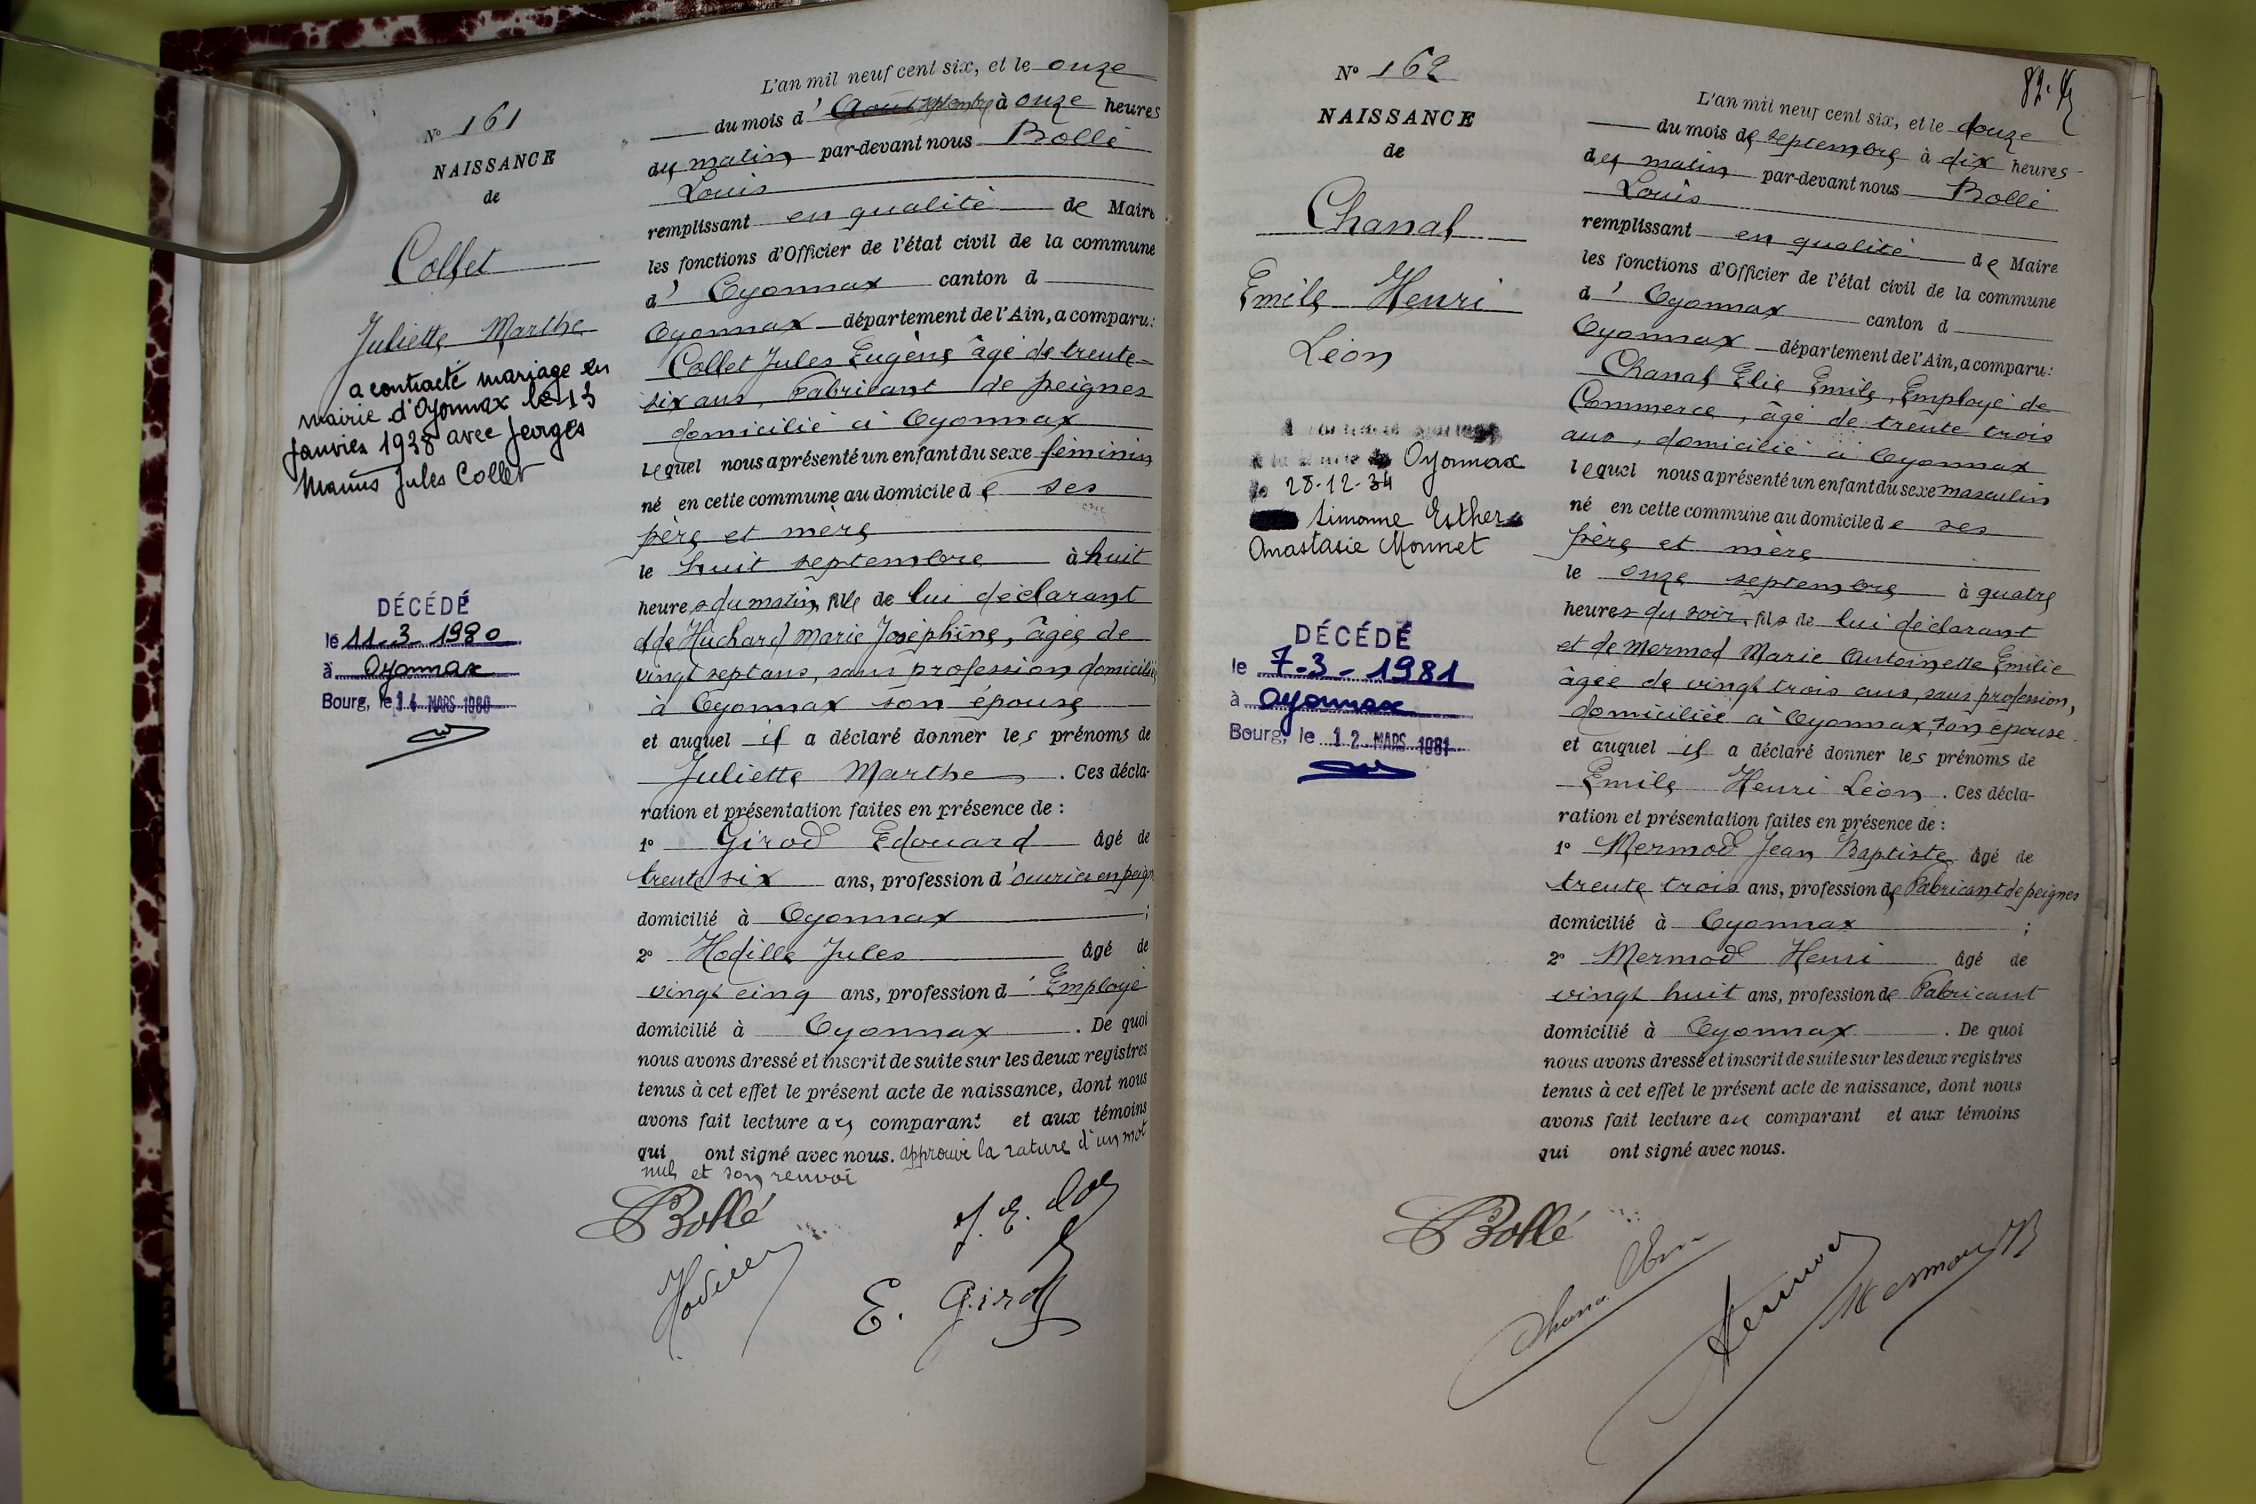 N° 161
NAISSANCE
de
Collet
Juliette Marthe
a contracté mariage en
mairie d'Oyonnax le 13
Janvier 1938 avec Georges
Marius Jules Collet
DÉCÉDÉ
le 11-3-1980
à Oyonnax
Bourg, le 14 MARS 1980
L'an mil neuf cent six, et le onze
du mois d' Août septembre à onze heures
du matin par-devant nous Bollé
Louis
remplissant en qualité de Maire
les fonctions d'Officier de l'état civil de la commune
d' Oyonnax canton d
Oyonnax département de l'Ain, a comparu:
Collet Jules Eugène âgé de trente-
six ans, Fabricant de peignes
domicilié à Oyonnax
lequel nous a présenté un enfant du sexe féminin
né en cette commune au domicile de ses
père et mère
le huit septembre à huit
heures du matin, fille de lui déclarant
et de Huchard Marie Joséphine, âgée de
vingt sept ans, sans profession domiciliée
à Oyonnax son épouse
et auquel il a déclaré donner les prénoms de
Juliette Marthe. Ces décla-
ration et présentation faites en présence de :
1° Girod Edouard âgé de
trente six ans, profession d'ouvrier en peign
domicilié à Oyonnax ;
2° Hodille Jules âgé de
vingt cinq ans, profession d' Employé
domicilié à Oyonnax. De quoi
nous avons dressé et inscrit de suite sur les deux registres
tenus à cet effet le présent acte de naissance, dont nous
avons fait lecture au comparant et aux témoins
qui ont signé avec nous. approuvé la rature d'un mot
nul et son renvoi
Bollé
E. Girod
N° 162
NAISSANCE
de
Chanal
Emile Henri
Léon
Oyonnax
le 28-12-34
Simonne Esther
Anastasie Monnet
DÉCÉDÉ
le 7-3-1981
à Oyonnax
Bourg, le 12 MARS 1981
L'an mil neuf cent six, et le douze
du mois de septembre à dix heures
du matin par-devant nous Bollé
Louis
remplissant en qualité de Maire
les fonctions d'Officier de l'état civil de la commune
d' Oyonnax canton d
Oyonnax département de l'Ain, a comparu:
Chanal Elie Emile, Employé de
Commerce, âgé de trente trois
ans, domicilié à Oyonnax
lequel nous a présenté un enfant du sexe masculin
né en cette commune au domicile de ses
père et mère
le onze septembre à quatre
heures du soir, fils de lui déclarant
et de Mermod Marie Antoinette Emilie
âgée de vingt trois ans, sans profession,
domiciliée à Oyonnax, son épouse
et auquel il a déclaré donner les prénoms de
Emile Henri Léon. Ces décla-
ration et présentation faites en présence de :
1° Mermod Jean Baptiste âgé de
trente trois ans, profession de Fabricant de peignes
domicilié à Oyonnax ;
2° Mermod Henri âgé de
vingt huit ans, profession de Fabricant
domicilié à Oyonnax. De quoi
nous avons dressé et inscrit de suite sur les deux registres
tenus à cet effet le présent acte de naissance, dont nous
avons fait lecture au comparant et aux témoins
qui ont signé avec nous.
Bollé